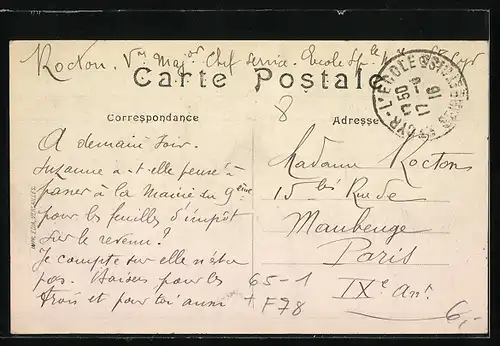 Rocton. Vre Major Chef Service. Ecole Sple Mre St Cyr
Carte Postale
Correspondance
Adresse
ST-CYR-L'ECOLE
17 50
17 - 6
16
8
A demain soir.
Suzanne a-t-elle pensé à
passer à la Mairie du 9ème
pour les feuilles d'impôt
sur le revenu?
Je compte sur elle n'est-ce
pas. Baisers pour les
trois et pour toi aussi
Madame Rocton
15 bis Rue de
Maubeuge
Paris
IXe Arrt.
65-1
+ F78
6,-